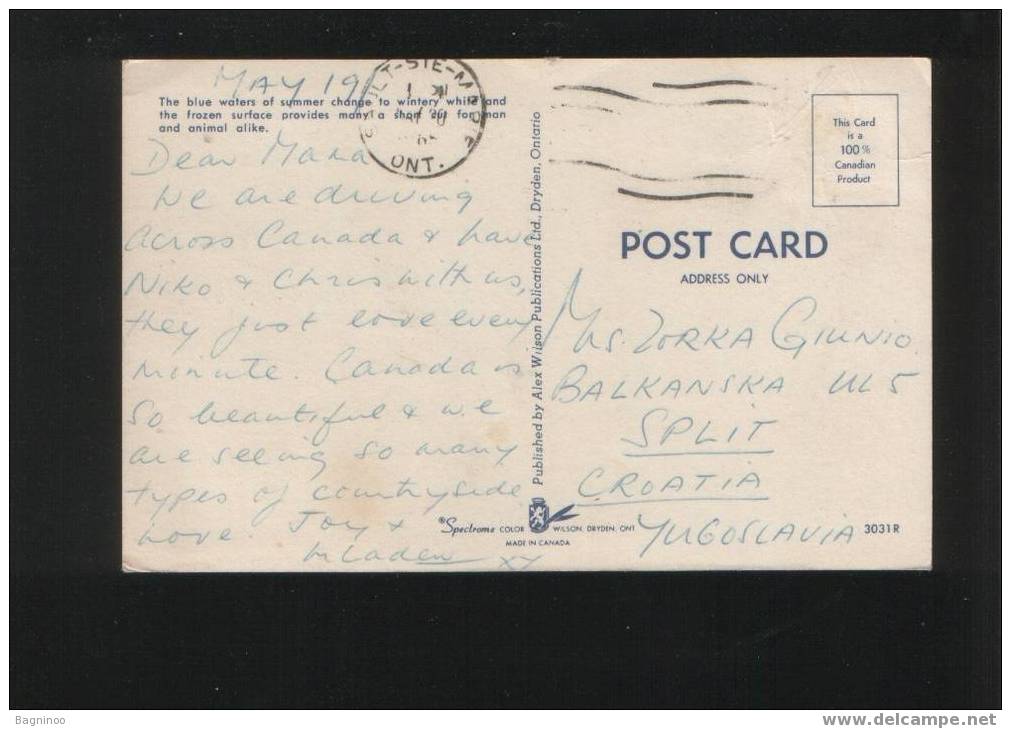 MAY 19
The blue waters of summer change to wintery white and
the frozen surface provides many a short cut for man
and animal alike.
SAULT-STE-MARIE
ONT.
Dear Mara
We are driving
across Canada & have
Niko & Chris with us,
they just love every
minute. Canada is
so beautiful & we
are seeing so many
types of countryside
Love. Joy &
Mladen xx
Published by Alex Wilson Publications Ltd., Dryden, Ontario
®Spectrome COLOR WILSON, DRYDEN, ONT
MADE IN CANADA
This Card
is a
100%
Canadian
Product
POST CARD
ADDRESS ONLY
Mrs. ZORKA GIUNIO.
BALKANSKA UL 5
SPLIT
CROATIA
YUGOSLAVIA
3031R
Bagninoo
www.delcampe.net